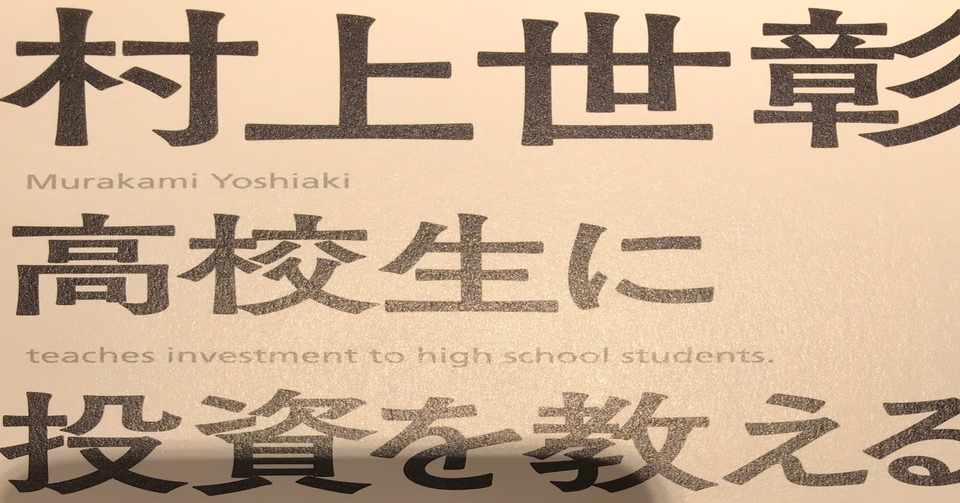 村上世彰
Murakami Yoshiaki
高校生に
teaches investment to high school students.
投資を教える